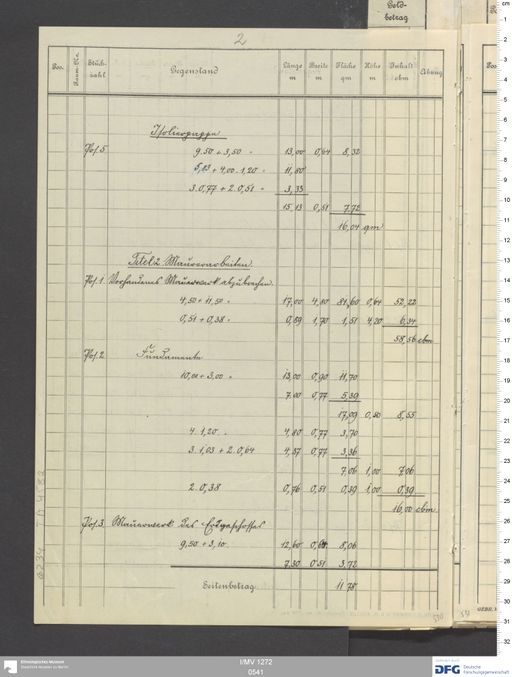 Geld-
betrag
2
Pos. Raum-No. Stück- zahl Gegenstand Länge m Breite m Fläche qm Höhe m Inhalt cbm Abzug
Isolierpappe
Pos. 5 9.50 + 3,50 = 13,00 0,64 8,32
5,13 + 4,00 . 1,20 = 11,80
3. 0,77 + 2. 0,51 = 3,33
15 13 0,51 7.72
16,04 qm
Titel 2. Maurerarbeiten
Pos. 1 Vorhandenes Mauerwerk abzubrechen.
4,50 + 11,50 = 17,00 4,80 81,60 0,64 52,22
0,51 + 0,38 = 0,89 1,70 1,51 4,20 6,34
58,56 cbm
Pos. 2 Fundamente
10,00 + 3,00 = 13,00 0,90 11,70
7.00 0,77 5,39
17,09 0,50 8,55
4. 1,20 = 4,80 0,77 3,70
3. 1,03 + 2. 0,64 4,37 0,77 3,36
7,06 1,00 7,06
2. 0,38 0,76 0,51 0,39 1,00 0,39
16,00 cbm
Pos. 3 Mauerwerk des Erdgeschosses
9,50 + 3,10 12,60 0,64 8,06
7.30 0,51 3,72
Seitenbetrag 11 78
I/MV 1272
0541
Ethnologisches Museum
Staatliche Museen zu Berlin
DFG Deutsche
Forschungsgemeinschaft